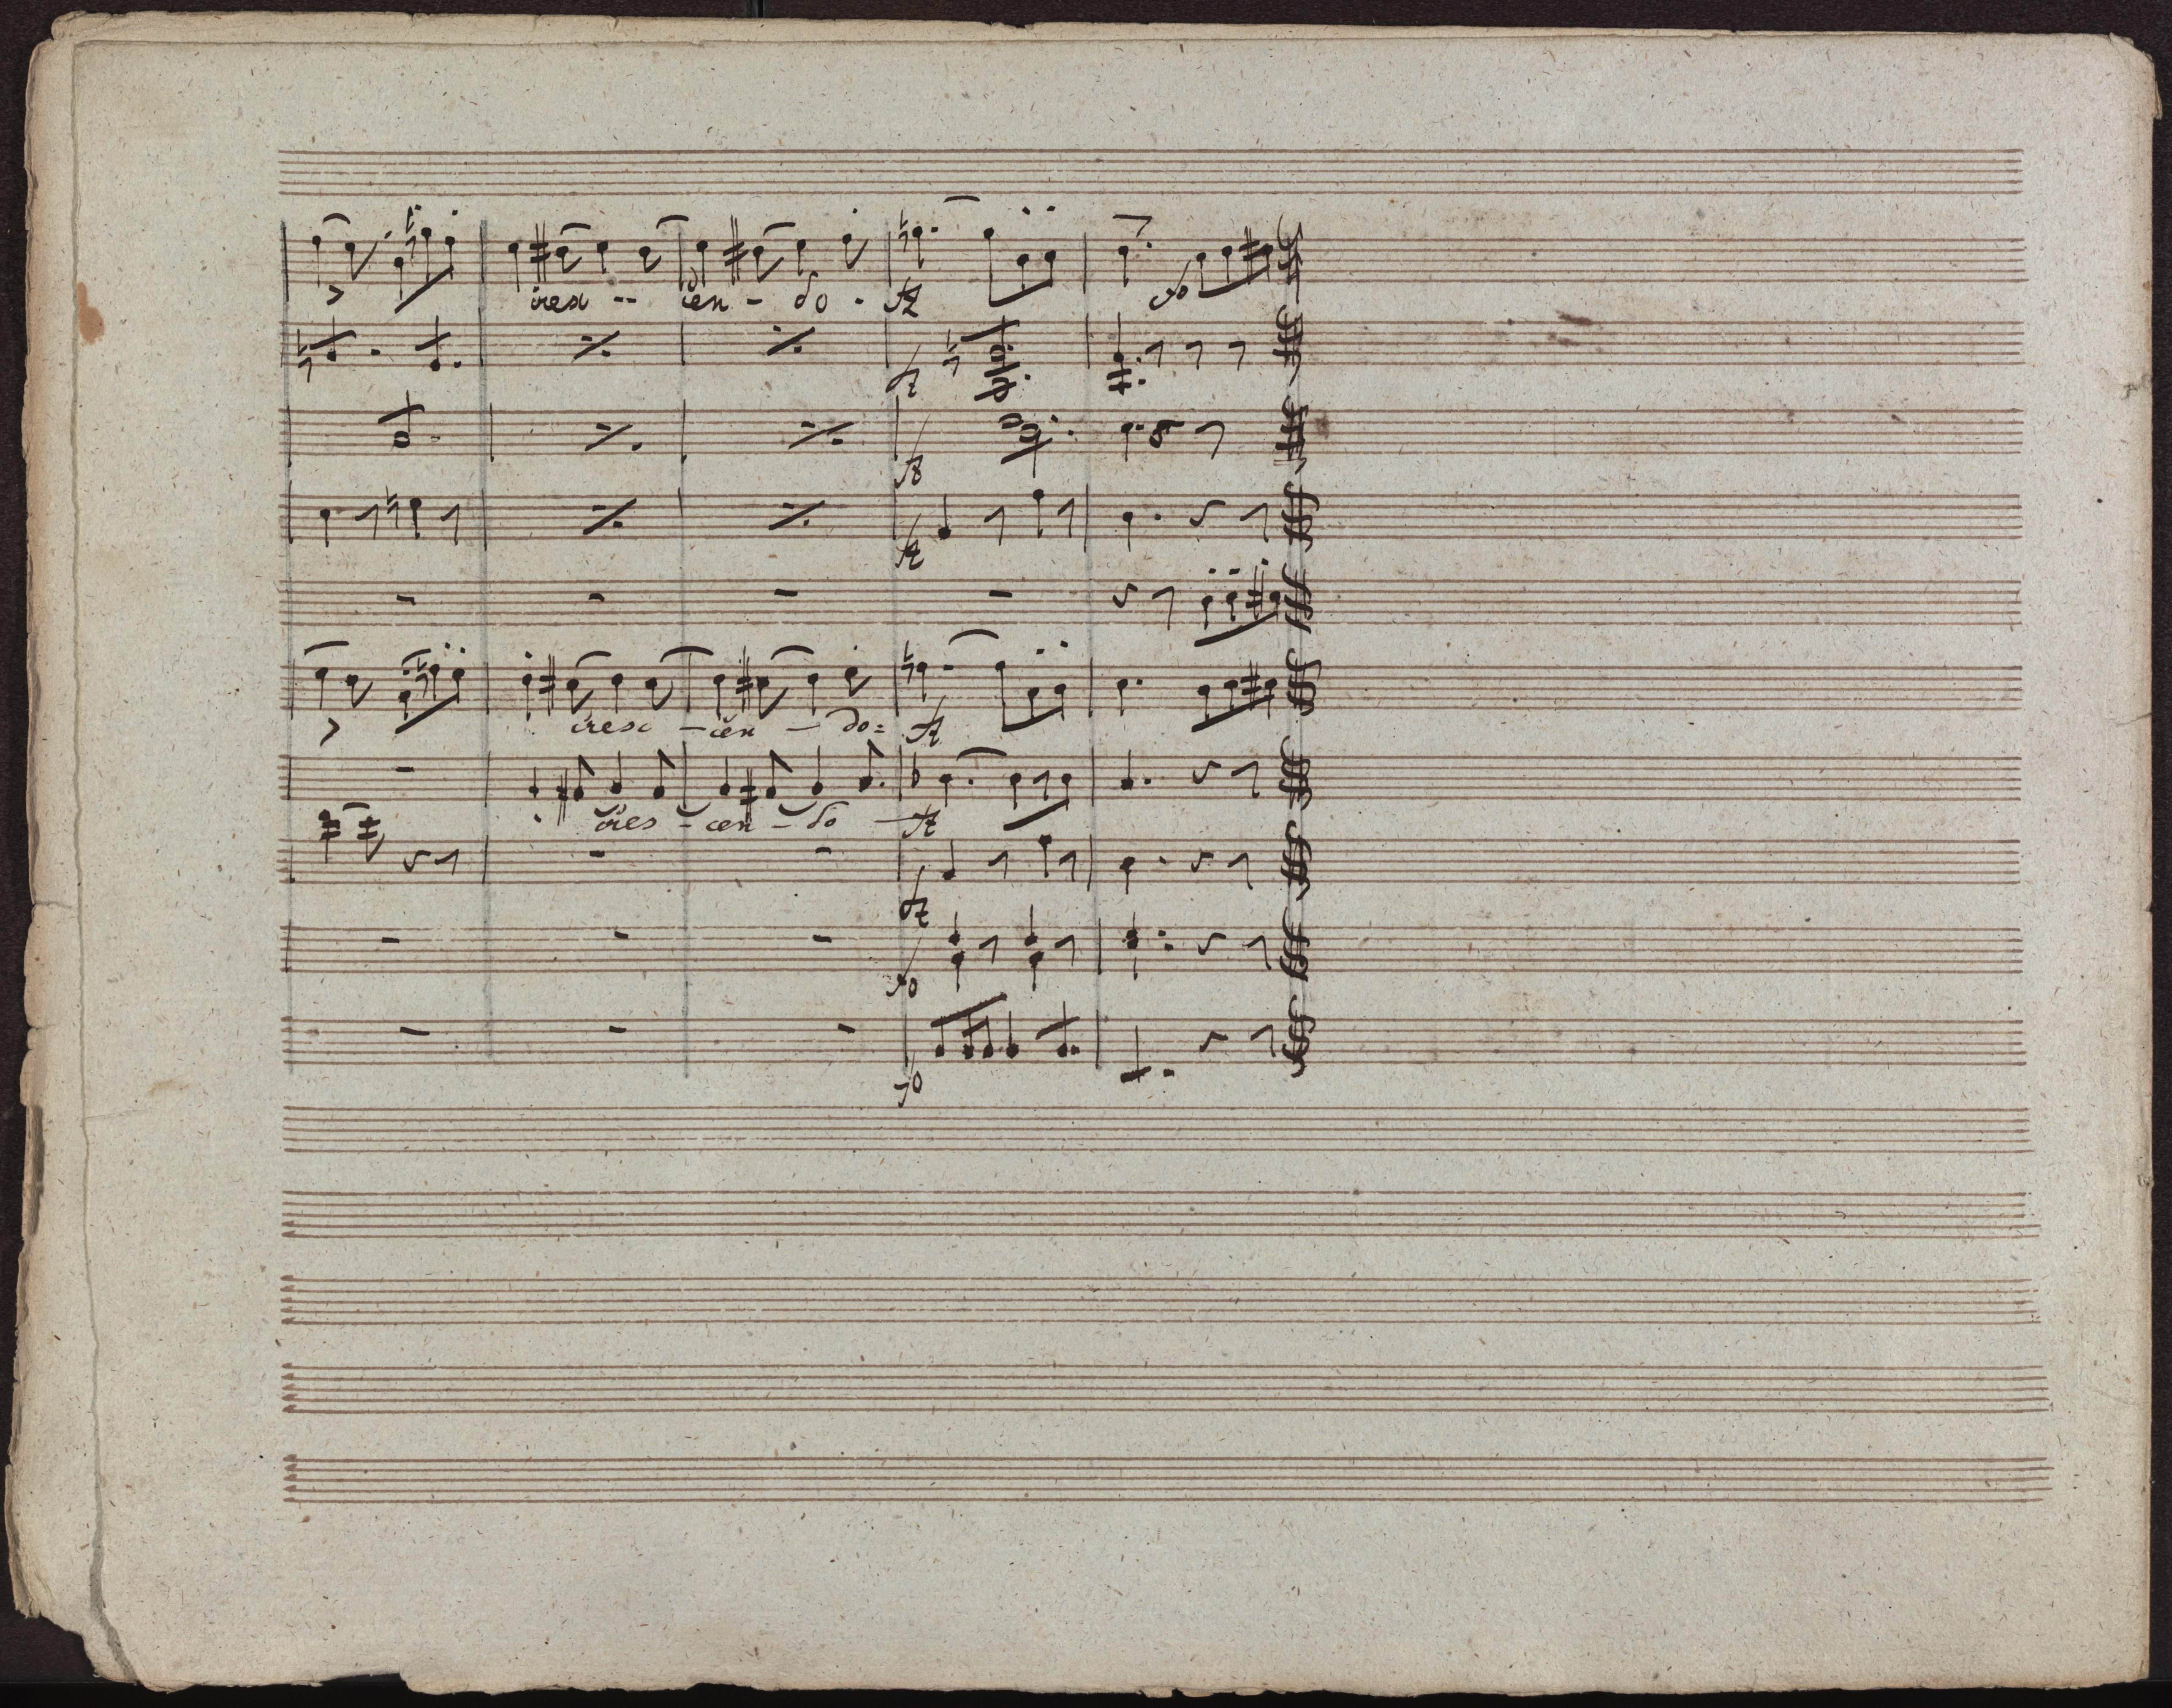 cresc -- cen - do -  fz
fo
fz
fz
fz
cresc - cen - do = fz
cres - cen - do - fz
fz
fo
fo